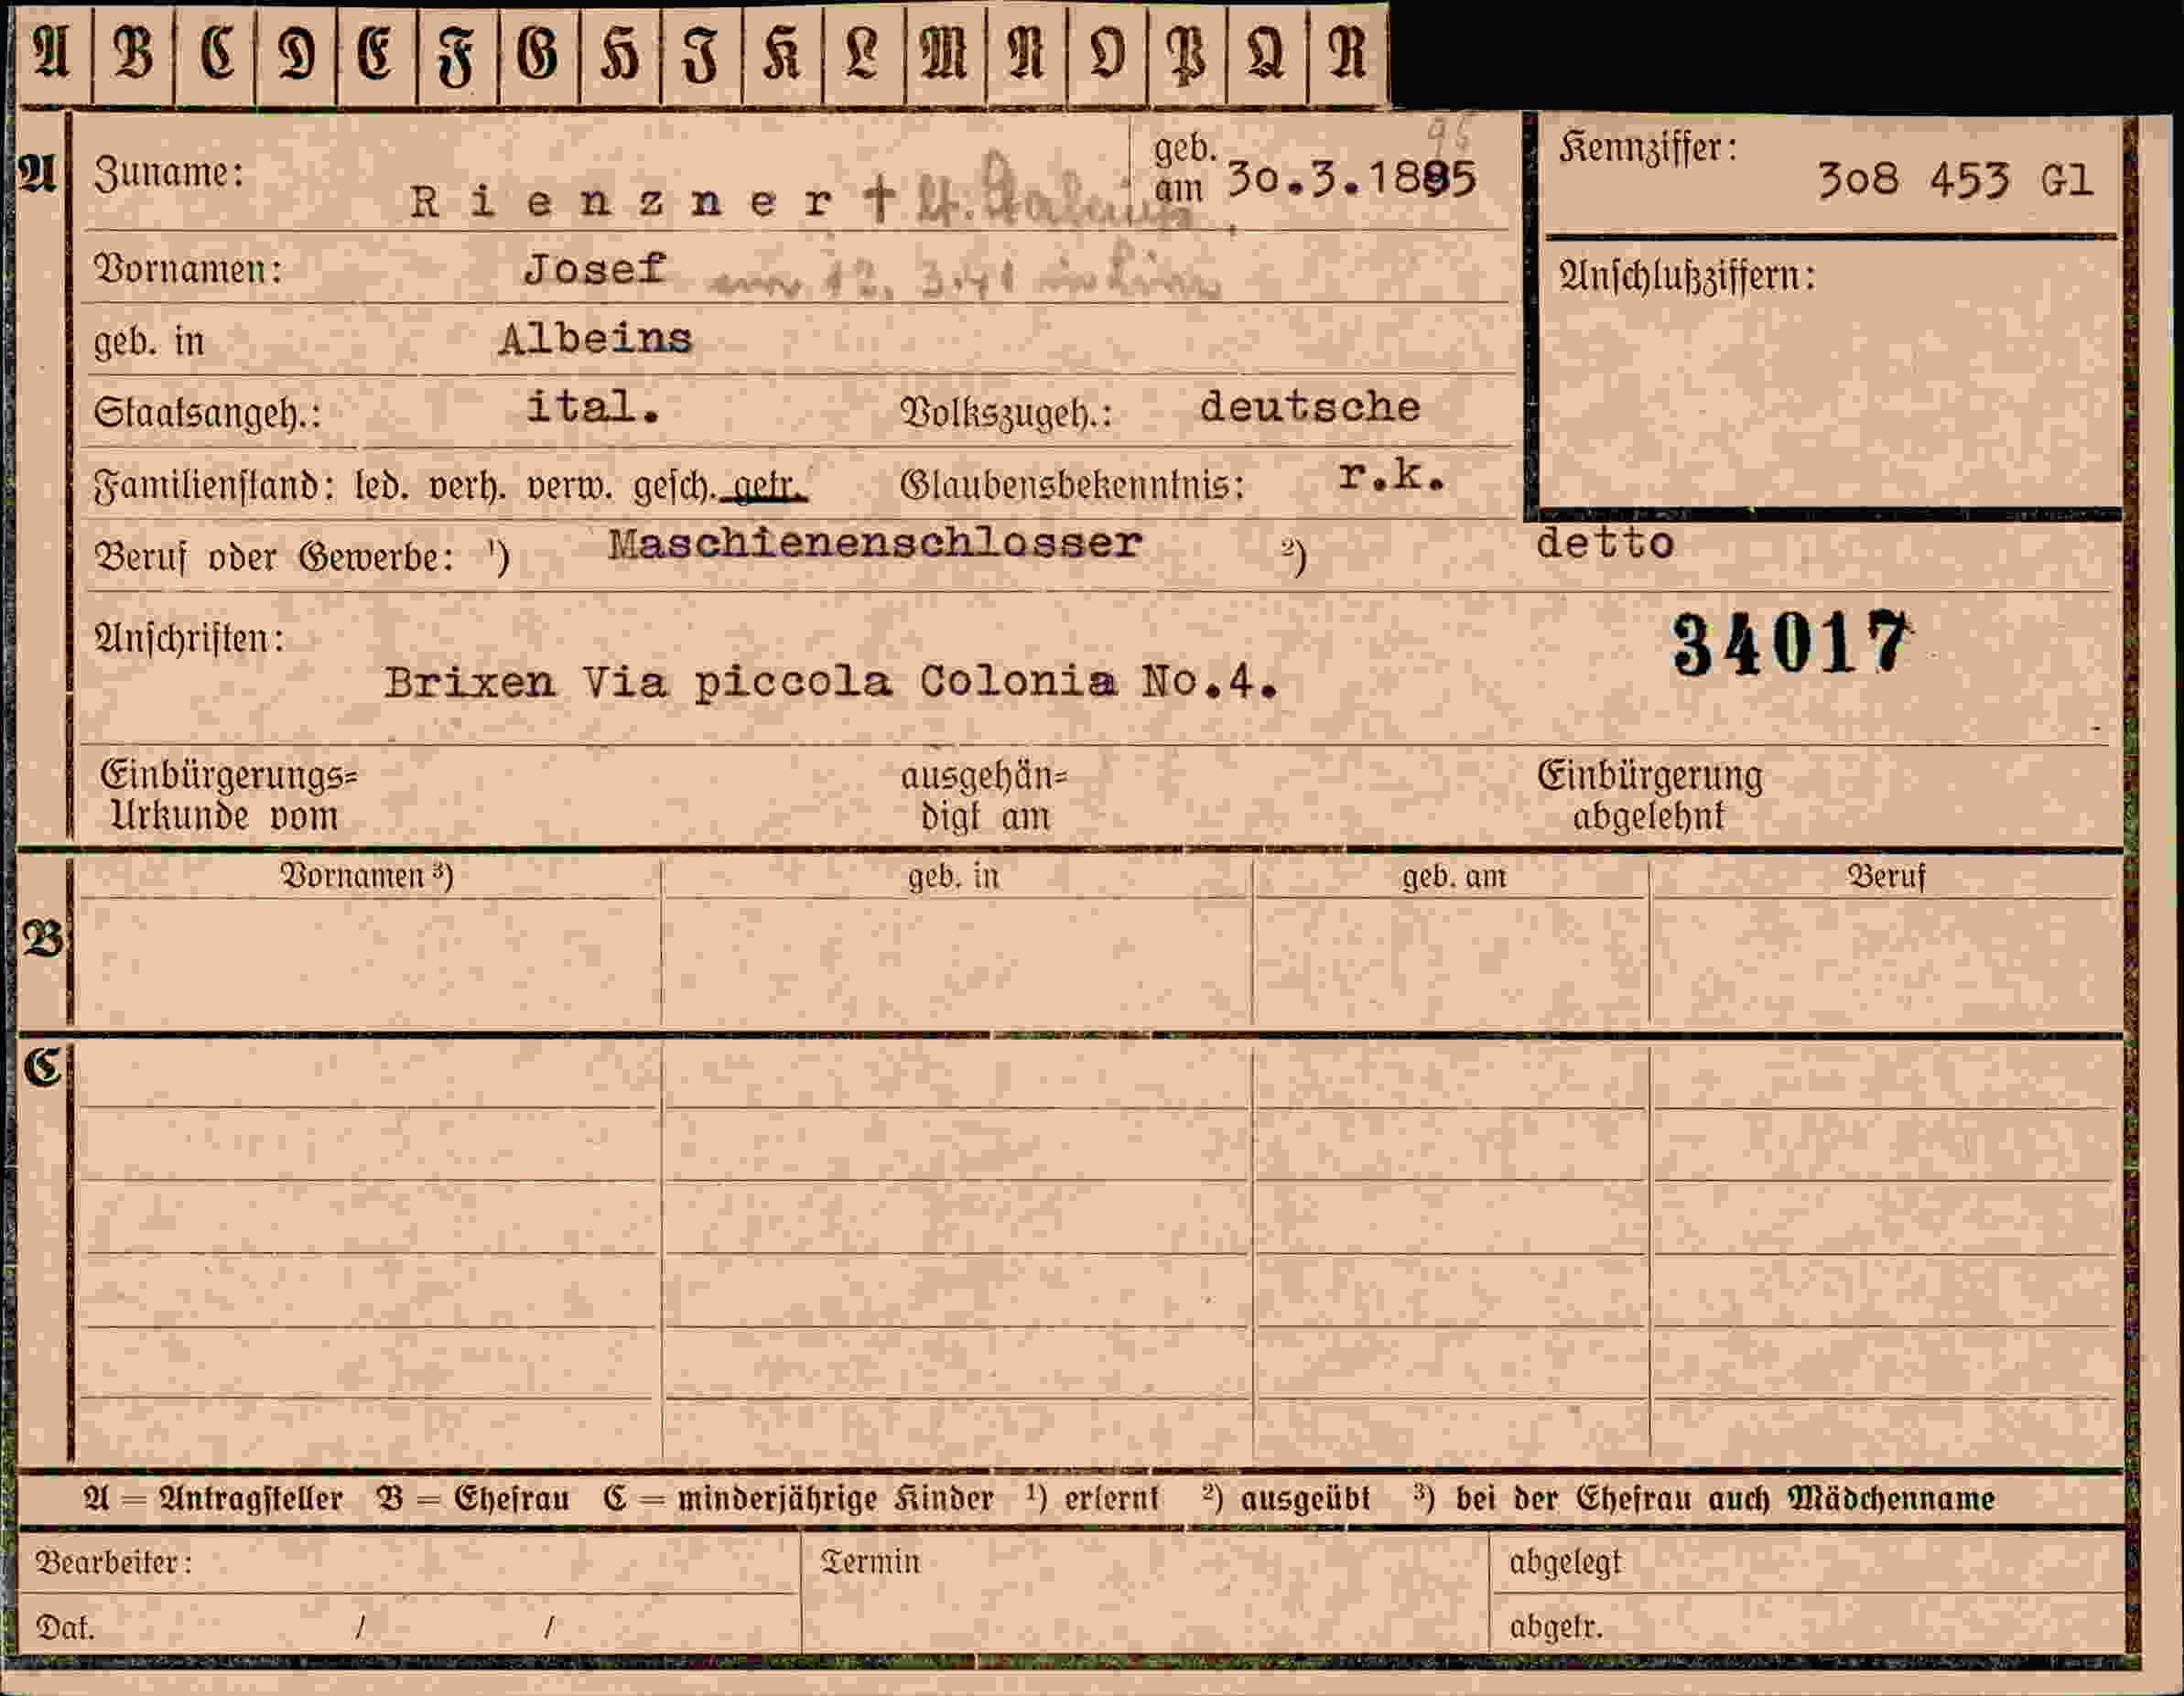 A B C D E F G H I K L M N O P Q R
A
Zuname: Rienzner †
geb. am 30.3.1895
95
Kennziffer: 308 453 Gl
Vornamen: Josef 12. 3.41 in
Anschlußziffern:
geb. in Albeins
Staatsangeh.: ital. Volkszugeh.: deutsche
Familienstand: led. verh. verw. gesch. getr. Glaubensbekenntnis: r.k.
Beruf oder Gewerbe: ¹) Maschienenschlosser ²) detto
Anschriften:
34017
Brixen Via piccola Colonia No.4.
Einbürgerungs=
Urkunde vom
ausgehän=
digt am
Einbürgerung
abgelehnt
B
Vornamen ³) geb. in geb. am Beruf
C
A = Antragsteller B = Ehefrau C = minderjährige Kinder ¹) erlernt ²) ausgeübt ³) bei der Ehefrau auch Mädchenname
Bearbeiter: Termin abgelegt
Dat. / / abgetr.